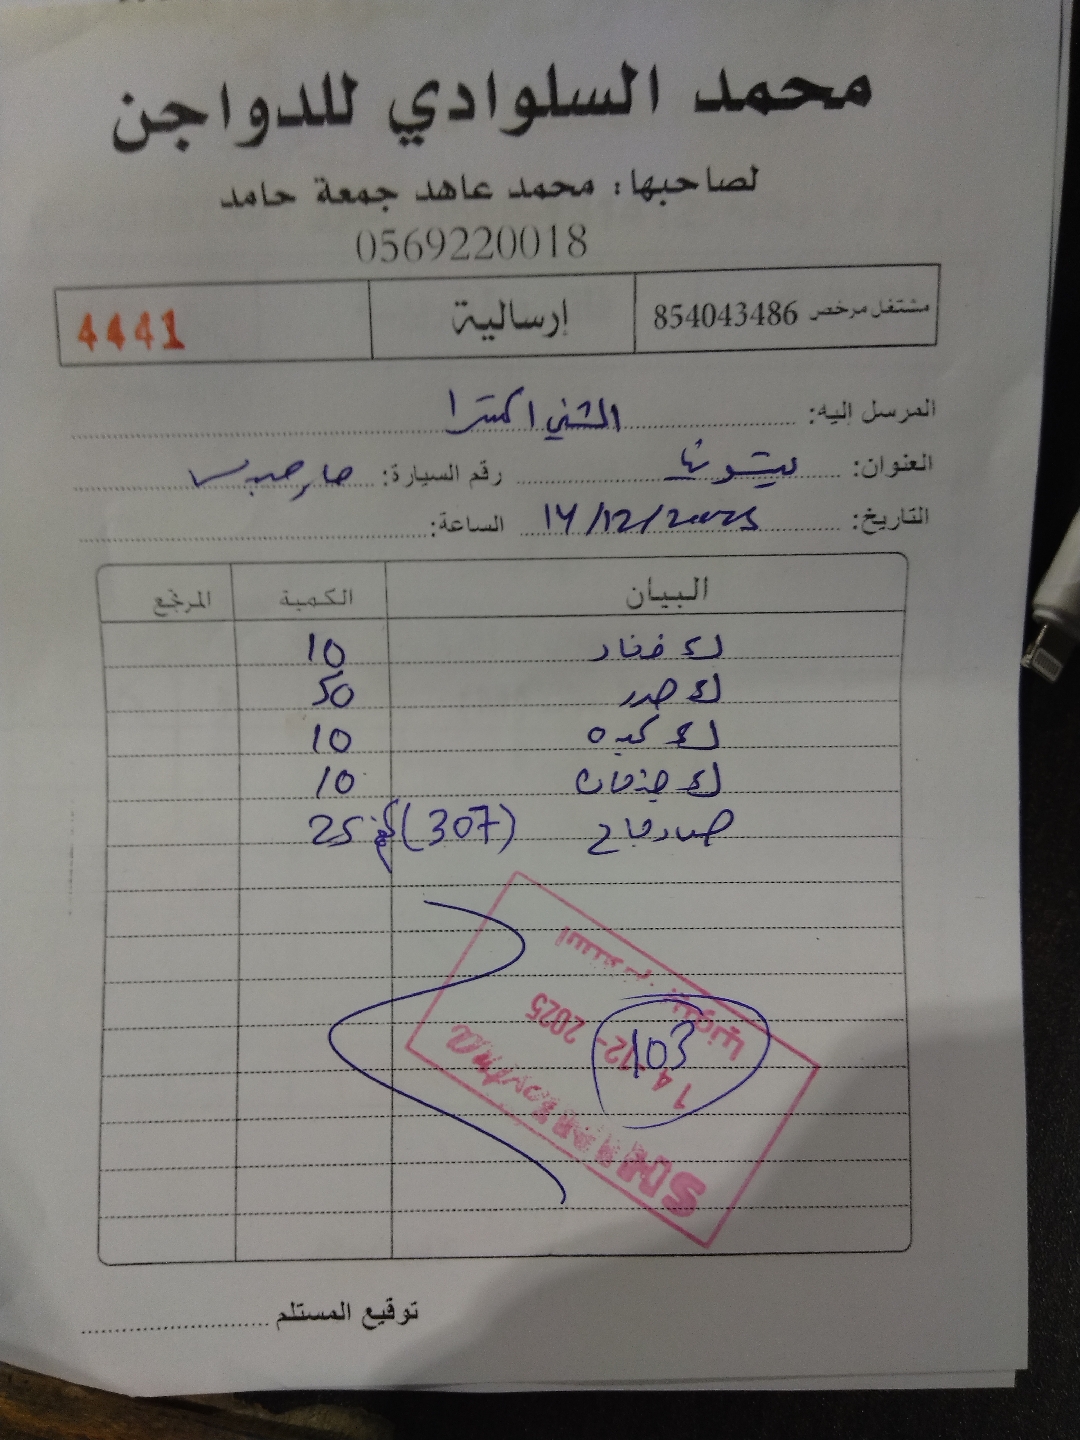 محمد السلوادي للدواجن
لصاحبها: محمد عاهد جمعة حامد
0569220018
مشتغل مرخص 854043486 إرسالية 4441
المرسل إليه: الشني اكسترا
العنوان: بيتونيا رقم السيارة:
التاريخ: 14/12/2025 الساعة:
البيان الكمية المرتجع
ك فخاد 10
ك صدر 50
ك كبده 10
ك جنحان 10
(307) 25
SHINI EXTRA
14 -12- 2025
بيتونيا
103
توقيع المستلم